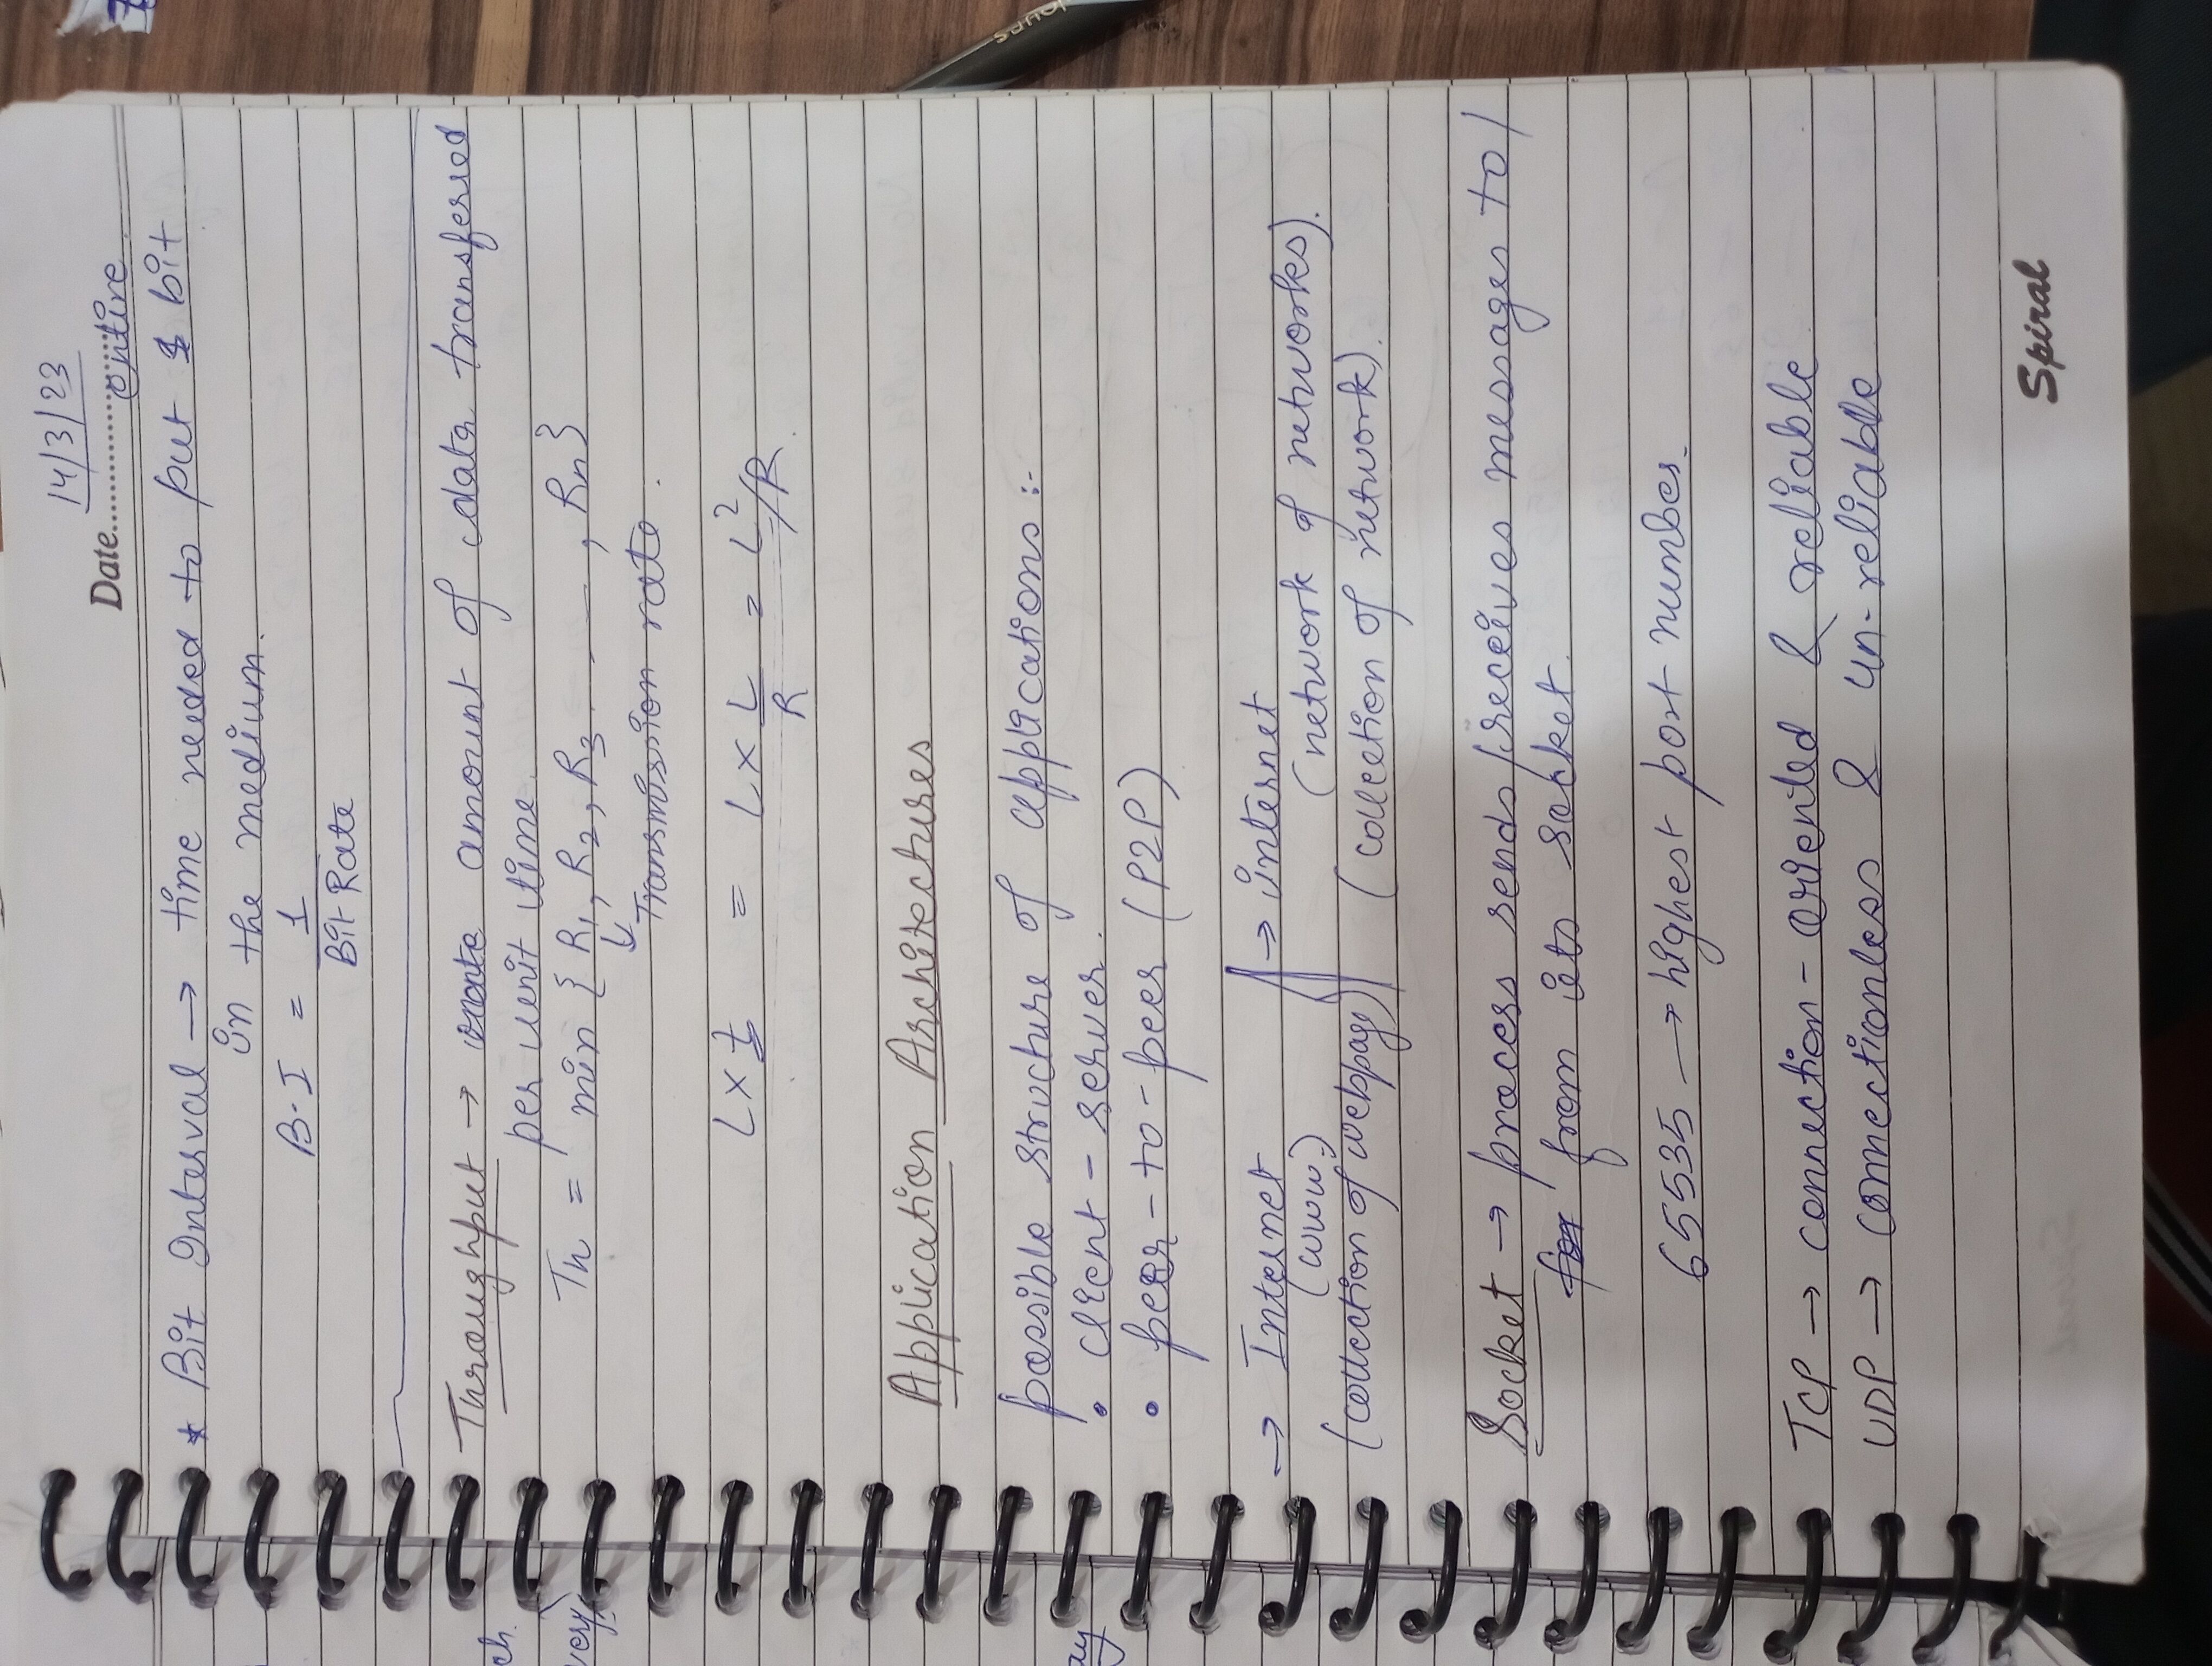 14/3/23
Date..................
entire
* Bit Interval → time needed to put 1 bit
in the medium.
B.I = 1
Bit Rate
Throughput → amount of data transferred
per unit time
Th = min { R1, R2, R3 - - - , Rn}
↓
Transmission rate.
L x t = L x L = L²/R.
R
Application Architectures
possible structure of applications :-
• client - server.
• peer - to - peer (P2P)
→ Internet → internet
(www) (network of networks).
(collection of webpage) (collection of network).
Socket → process sends/receives messages to/
from its socket.
65535 → highest port number.
TCP → connection - oriented & reliable
UDP → connectionless & un-reliable
Spiral
ch.
very)
ay
ours